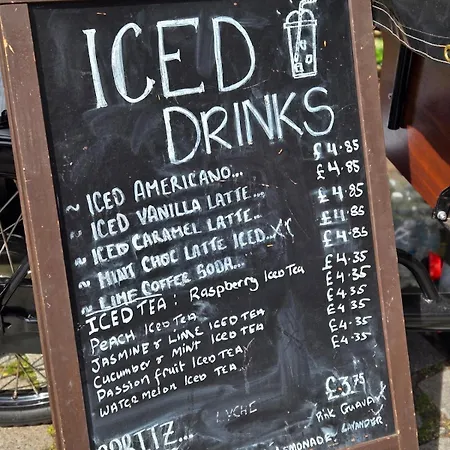 ICED
DRINKS
~ ICED AMERICANO... £4.85
~ ICED VANILLA LATTE... £4.85
~ ICED CARAMEL LATTE... £4.85
~ MINT CHOC LATTE ICED £4.85
~ LIME COFFEE SODA... £4.85
ICED TEA : Raspberry Iced Tea £4.35
PEACH ICED TEA £4.35
JASMINE & LIME ICED TEA £4.35
Cucumber & MINT ICED TEA £4.35
Passion fruit Iced Tea £4.35
WATERMELON ICED TEA £4.35
£3.75
LYCHE Pink Guava
LEMONADE, LAVANDER